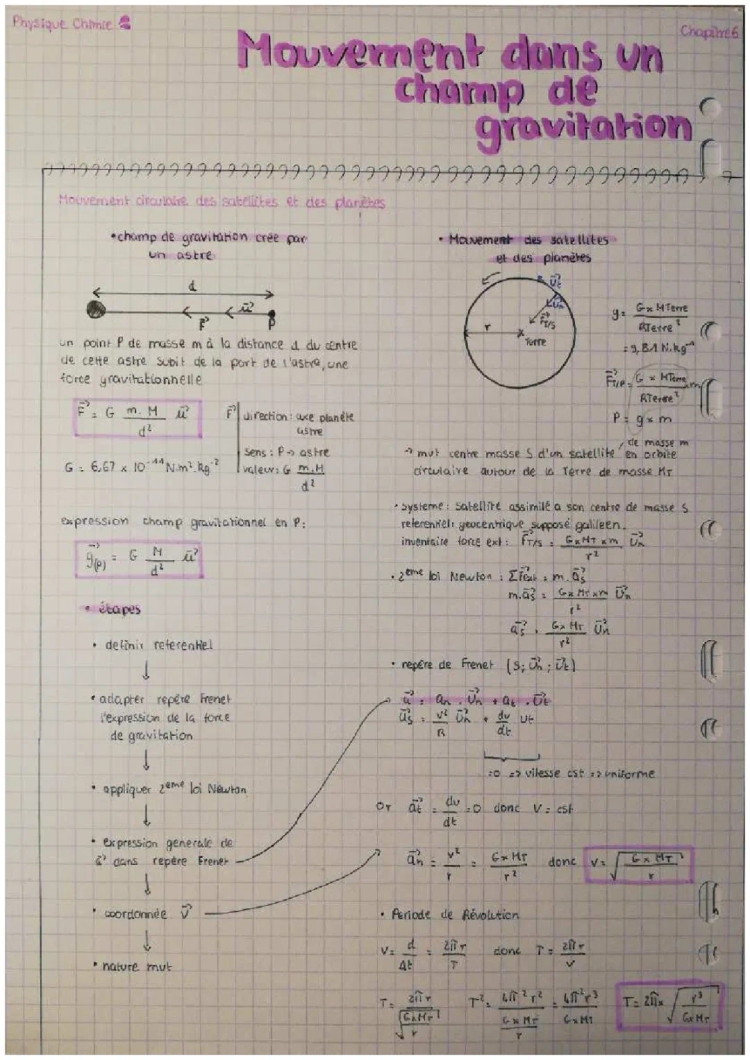 Physique Chimie
Chapitre 6
Mouvement dans un
champ de
gravitation
Mouvement circulaire des satellites et des planètes
• champ de gravitation crée par
un astre
d
F⃗ u⃗ P
un point P de masse m à la distance d du centre
de cette astre subit de la part de l'astre, une
force gravitationnelle
F⃗ = G m.M/d² u⃗
F⃗ direction : axe planète
astre
sens : P → astre
valeur : G m.M/d²
G = 6,67 × 10⁻¹¹ N.m².kg⁻²
expression champ gravitationnel en P :
g⃗(P) = G M/d² u⃗
• étapes
• definir referentiel
↓
• adapter repère Frenet
l'expression de la force
de gravitation
↓
• appliquer 2ème loi Newton
↓
• expression generale de
a⃗ dans repère Frenet
↓
• coordonnée v⃗
↓
• nature mvt
• Mouvement des satellites
et des planètes
U⃗t
U⃗n
F⃗T/S
r
Terre
g = G × MTerre/RTerre²
= 9,81 N.kg⁻¹
F⃗T/P = G × MTerre/RTerre² m
P = g × m
→ mvt centre masse S d'un satellite de masse m en orbite
circulaire autour de la Terre de masse MT
• système : satellite assimilé a son centre de masse S
referentiel : geocentrique supposé galileen
inventaire force ext : F⃗T/S = G×MT×m/r² U⃗n
• 2ème loi Newton : ΣF⃗ext = m.a⃗s
m.a⃗s = G×MT×m/r² U⃗n
a⃗s = G×MT/r² U⃗n
• repère de Frenet (S; U⃗n; U⃗t)
a⃗ = an . U⃗n + at . U⃗t
a⃗s = v²/R U⃗n + dv/dt Ut
=0 => vitesse cst => uniforme
Or a⃗t = dv/dt = 0 donc V = cst
a⃗n = v²/r = G×MT/r² donc v = √(G×MT/r)
• Periode de Révolution
V = d/Δt = 2πr/T donc T = 2πr/v
T = 2πr/√(G×MT/r) T² = 4π²r²/(G×MT/r) = 4π²r³/G×MT T = 2π× √(r³/G×MT)